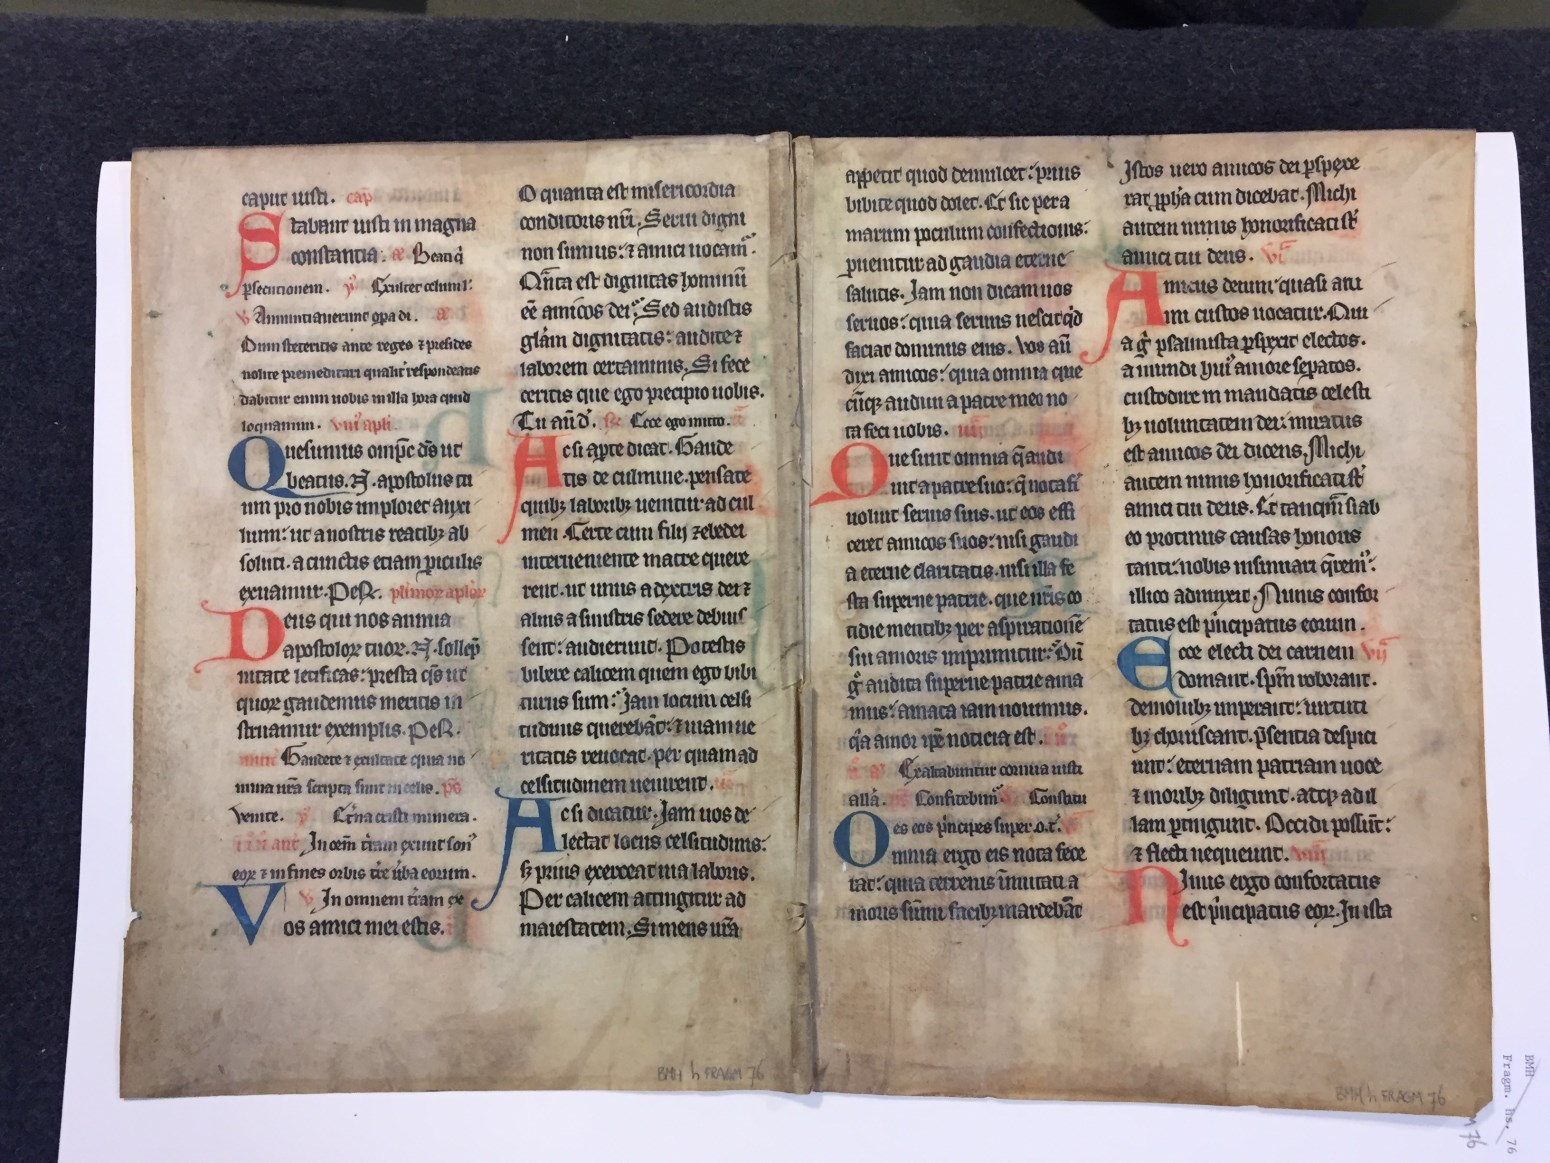 caput iusti. cap̄
Stabunt iusti in magna
constantia. Beati q̇
ꝑsecutionem. Exultet celum l'.
Annuntiauerunt oꝑa di.
Dum steteritis ante reges ⁊ presides
nolite premeditari qualit̓ respondeatis
dabitur enim uobis in illa hora quid
loquamini. apl̓i
Quesumus omp̄c ds̄ ut
beatus .N. apostolus tu
um pro nobis imploret auxi
lium: ut a nostris reatibꝫ ab
soluti. a cunctis etiam ꝑiculis
exuamur. Per. plimoꝝ aploꝝ
Deus qui nos annua
apostoloꝝ tuoꝝ .N. sollēp
nitate letificas: presta qs̄ ut
quoꝝ gaudemus meritis in
struamur exemplis. Per.
Gaudete ⁊ exultate quia no
mina ur̄a scripta sunt in celis. ps̄
Venite. Et̓na cristi munera.
In oēm t̓ram exiuit son̓
eoꝝ ⁊ in fines orbis t̓re u̓ba eorum.
In omnem t̓ram ex
Vos amici mei estis.
O quanta est misericordia
conditoris nr̄i. Serui digni
non sumus: ⁊ amici uocam̓.
Qn̄ta est dignitas hominū
eē amicos dei. Sed audistis
gl̄am dignitatis: audite ⁊
laborem certaminis. Si fece
ceritis que ego precipio uobis.
Tu aū d̓. Ecce ego mitto.
Ac si aꝑte dicat. Gaude
tis de culmine. pensate
quibꝫ laboribꝫ uenitur ad cul
men. Certe cum filij zebedei
interueniente matre quere
rent. ut unus a dextris dei ⁊
alius a sinistris sedere debuis
sent: audierunt. Potestis
bibere calicem quem ego bibi
turus sum. Jam locum celsi
tudinis querebāt: ⁊ uiam ue
ritatis reuocat. per quam ad
celsitudinem uenirent.
Ac si dicatur. Jam uos de
lectat locus celsitudinis:
sꝫ prius exerceat uia laboris.
Per calicem attingitur ad
maiestatem. Si mens ur̄a
appetit quod demulcet: prius
bibite quod dolet. Et sic per a
marum poculum confectionis:
ꝑuenitur ad gaudia eterne
salutis. Jam non dicam uos
seruos: quia seruus nescit qd̓
faciat dominus eius. Vos aū
dixi amicos: quia omnia que
cūqꝫ audiui a patre meo no
ta feci uobis.
Que sunt omnia q̄ audi
uit a patre suo: q̄ nota fi
uoluit seruis suis. ut eos effi
ceret amicos suos: nisi gaudi
a eterne claritatis. nisi illa fe
sta superne patrie. que nr̄is co
tidie mentibꝫ per aspirationē
sui amoris imprimitur. Dū
g̓ audita superne patrie ama
mus: amata iam nouimus.
q̇a amor ip̄e noticia est.
Exaltabuntur cornua iusti
all̄a. Confitebim̓ Constitu
es eos p̓ncipes super .o.t.
Omnia ergo eis nota fece
rat: quia terrenis īmutati a
moris sūmi facibꝫ ardebāt
Istos uero amicos dei ꝑspexe
rat ꝓph̓a cum dicebat. Michi
autem nimis honorificati st̄
amici tui deus. vi
Amicus denim̓ quasi ani
mi custos uocatur. Qui
a g̓ psalmista ꝑspexit electos.
a mundi hui̓ amore seꝑatos.
custodire in mandatis celesti
bꝫ uoluntatem dei: miratus
est amicos dei dicens. Michi
autem nimis honorificati st̄
amici tui deus. Et tanqm̄ si ab
eo protinus causas honoris
tanti: nobis insinuari q̄rem̓:
illico adiunxit. Nimis confor
tatus est p̓ncipatus eorum.
Ecce electi dei carnem vij
domant. spm̄ roborant.
demonibꝫ imperant: uirtuti
bꝫ choruscant. p̄sentia despici
unt: eternam patriam uoce
⁊ moribꝫ diligunt. atqꝫ ad il
lam ꝑtingunt. Occidi possūt:
⁊ flecti nequeunt. viij
Nimis ergo confortatus
est p̓ncipatus eoꝝ. In ista
BMH h FRAGM 76
BMH h FRAGM 76
BMH
Fragm. hs. 76